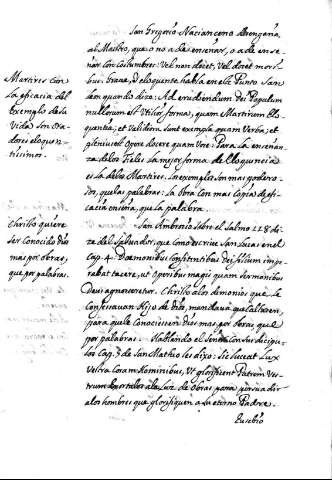 San Gregorio Nacianceno
al Maestro, que o no a de enseñar, o a de ense-
ñar con costumbres: Vel non docet, vel docet mori-
bus: brava, y eloquente habla en este Punto San
quando dixo: Ad erudiendum Dei Populum
nullorum est Utilior forma, quam Martirum Elo-
quentia, et validiora sunt exempla quam Verba, et
plenius est Opere docere quam Voce. Para la enseñan-
za de los Fieles la mejor forma de Eloquencia
es la de los Martires. Los exemplos son mas podero-
sos, que las palabras: la Obra con mas copia de efi-
cacia enseña, que la palabra.
Martires con
la eficacia del
Exemplo de la
Vida, son Ora-
dores eloquen-
tissimos.
San Ambrosio sobre el Salmo 118 di-
ze del Salvador, que como escrive San Lucas en el
Cap. 4. Daemonibus Confitentibus Dei filium impe-
rabat tacere, ut Operibus magis quam sermonibus
Deus agnosceretur. Christo a los demonios que le
Confessavan Hijo de Dios, mandava que callassen,
para que le Conociessen Dios mas por obras que
por palabras. Hablando el Señor con sus Discipu-
los Cap. 5 de San Matheo les dixo: Sic luceat Lux
Vestra Coram Hominibus, Ut glorificent Patrem Ves-
trum. luz de obras para persuadir
a los hombres que glorifiquen a su eterno Padre.
Christo quiere
ser Conocido Dios
mas por obras,
que por palabras.
Eusebio